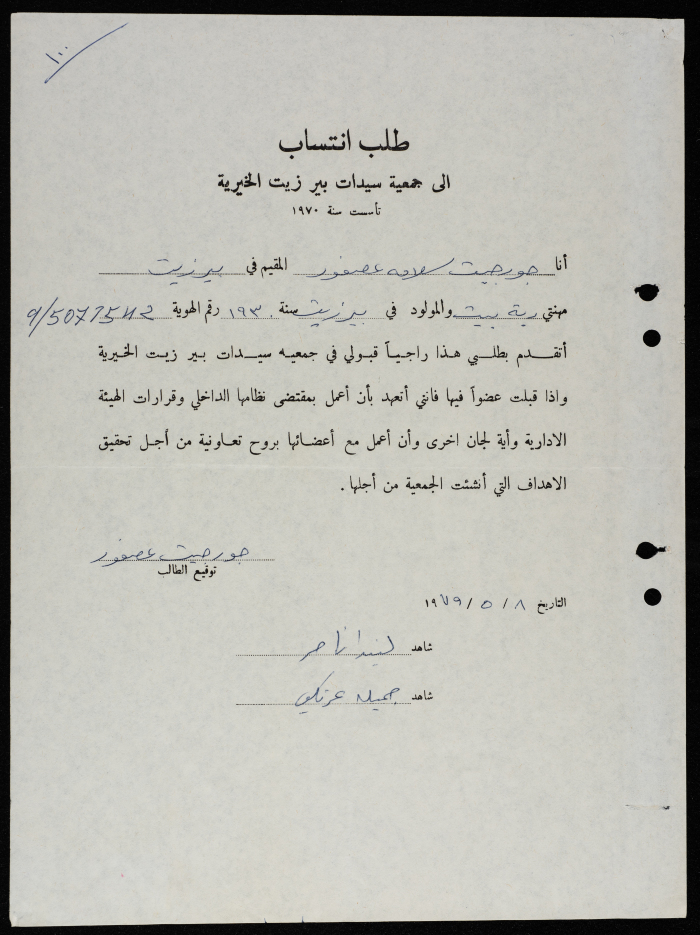 ١٠٠
طلب انتساب
الى جمعية سيدات بير زيت الخيرية
تأسست سنة ١٩٧٠
أنا جورجيت سلامه عصفور المقيم في بيرزيت
مهنتي ربة بيت والمولود في بيرزيت سنة ١٩٣٠ رقم الهوية 9/5077542
أتقدم بطلبي هذا راجياً قبولي في جمعيه سيدات بير زيت الخيرية
واذا قبلت عضواً فيها فانني أتعهد بأن أعمل بمقتضى نظامها الداخلي وقرارات الهيئة
الادارية وأية لجان اخرى وأن أعمل مع أعضائها بروح تعاونية من أجل تحقيق
الاهداف التي أنشئت الجمعية من أجلها .
جورجيت عصفور
توقيع الطالب
التاريخ ٨ / ٥ / ١٩٧٩
شاهد ليندا ناصر
شاهد جميله عرنكي